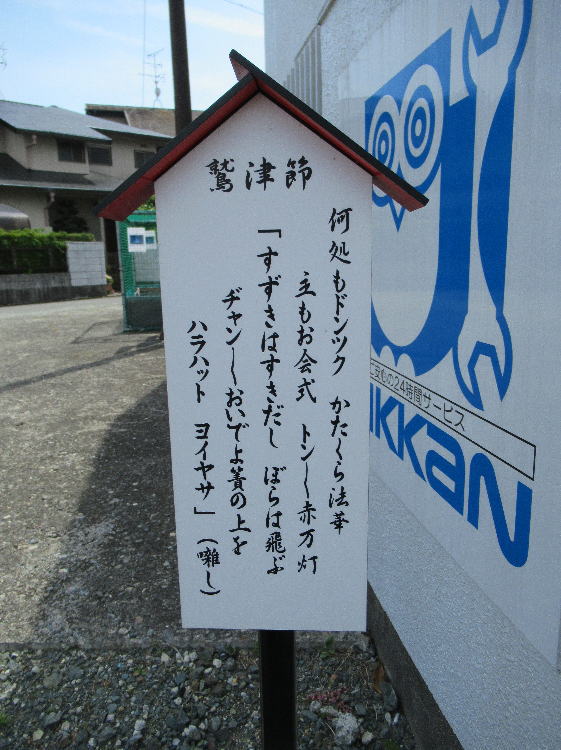 鷲津節
何処もドンツク かたくら法華
主もお会式 トン〳〵赤万灯
「すずきはすきだし ぼらは飛ぶ
チャン〳〵おいでよ簀の上を
ハラハット ヨイヤサ」(囃し)
心の24時間サービス
KKaN